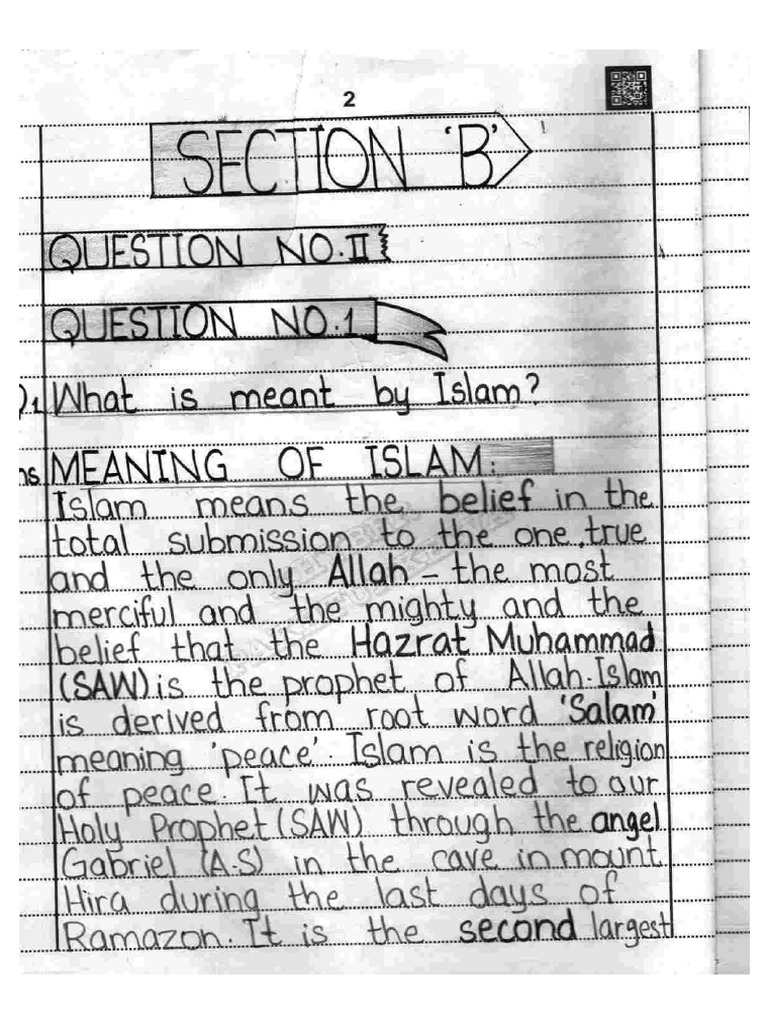 2
SECTION 'B'
QUESTION NO.II
QUESTION NO.1
Q1 What is meant by Islam?
ns. MEANING OF ISLAM:
Islam means the belief in the
total submission to the one, true
and the only Allah – the most
merciful and the mighty and the
belief that the Hazrat Muhammad
(SAW) is the prophet of Allah. Islam
is derived from root word 'Salam'
meaning 'peace'. Islam is the religion
of peace. It was revealed to our
Holy Prophet (SAW) through the angel
Gabriel (A.S) in the cave in mount
Hira during the last days of
Ramazon. It is the second largest